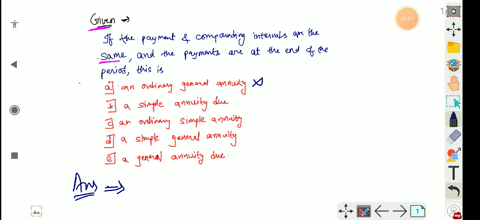 Given →
If the payment & compounding intervals are the
same, and the payments are at the end of the
period, this is
a) an ordinary general annuity
b) a simple annuity due
c) an ordinary simple annuity
d) a simple general annuity
e) a general annuity due.
Ans ⇒